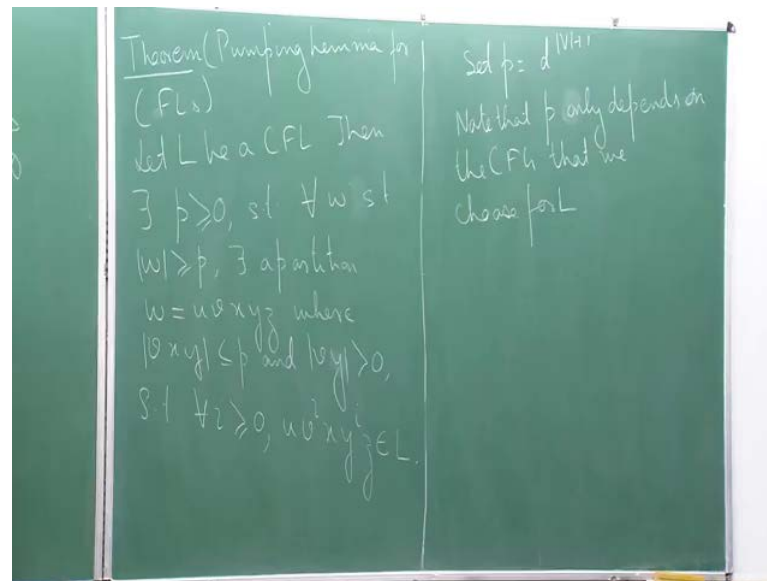 Theorem (Pumping Lemma for
CFLs)
Let L be a CFL Then
∃ p ≥ 0, s.t ∀ w st
|w| ≥ p, ∃ a partition
w = uvxyz where
|vxy| ≤ p and |vy| > 0,
S.t ∀ i ≥ 0, uvⁱxyⁱz ∈ L.
Set p = d^{|V|+1}
Note that p only depends on
the CFG that we
choose for L